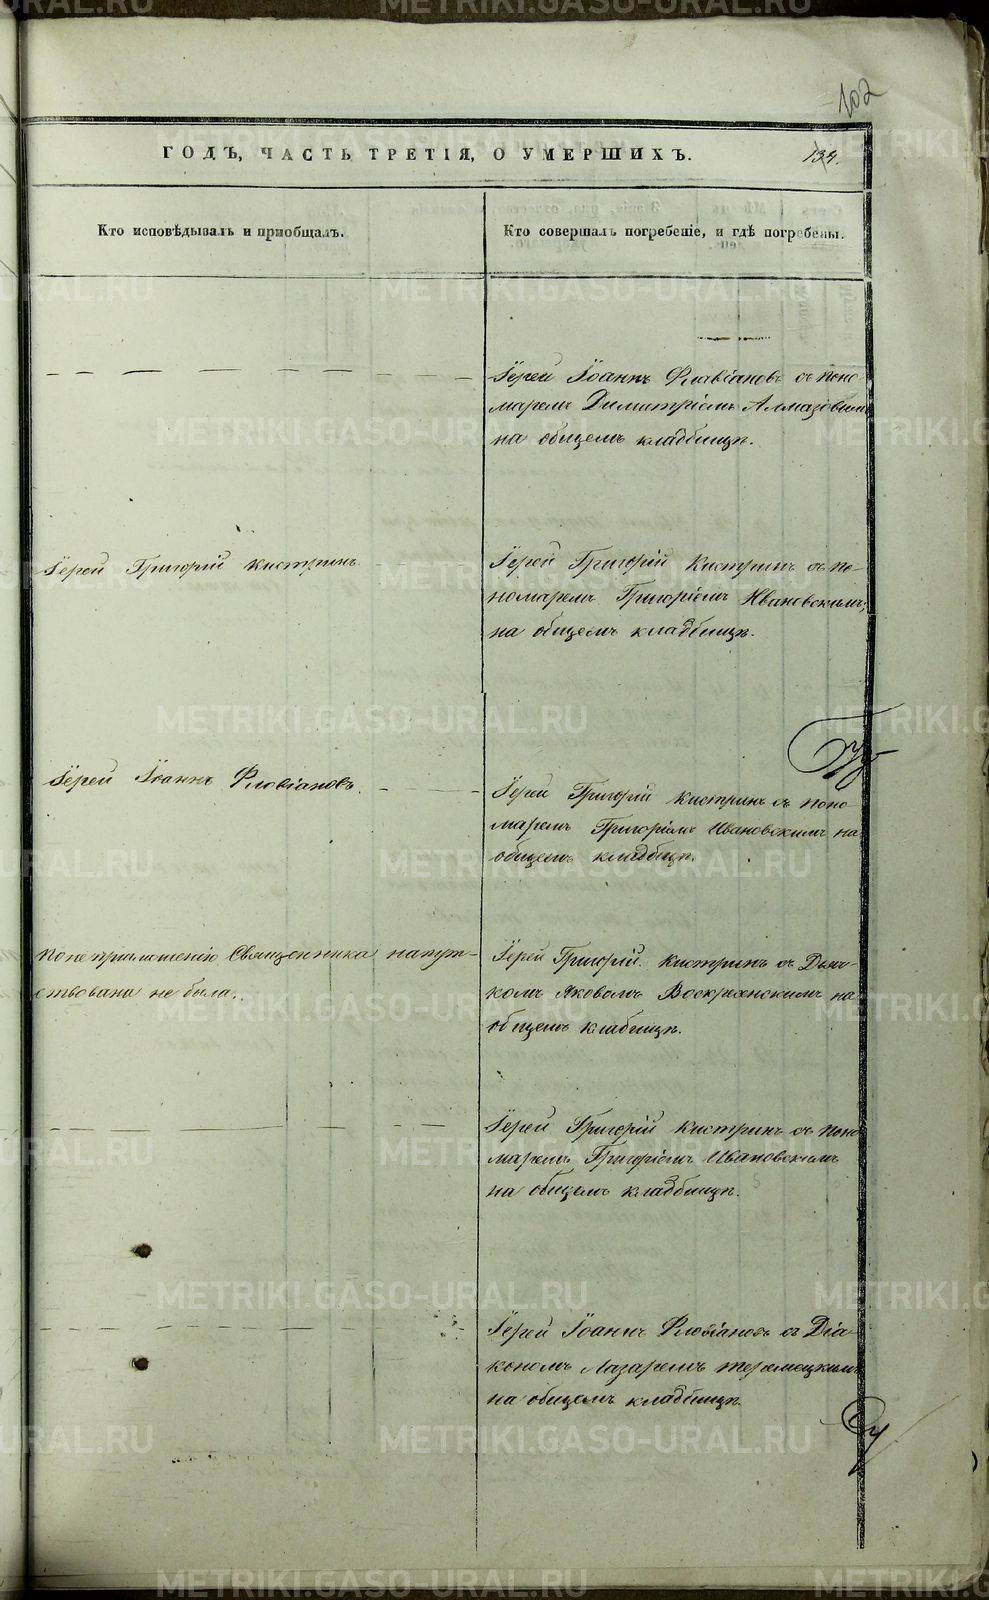 102
ГОДЪ, ЧАСТЬ ТРЕТІЯ, О УМЕРШИХЪ.
134.
Кто исповѣдывалъ и пріобщалъ.
Кто совершалъ погребеніе, и гдѣ погребены.
Іерей Іоаннъ Флавіановъ съ поно-
маремъ Димитріемъ Алмазовымъ
на общемъ кладбищѣ.
Іерей Григорій Кистринъ
Іерей Григорій Кистринъ съ по-
номаремъ Григоріемъ Ивановскимъ,
на общемъ кладбищѣ.
Іерей Іоаннъ Флавіановъ.
Іерей Григорій Кистринъ съ поно-
маремъ Григоріемъ Ивановскимъ на
общемъ кладбищѣ.
По не приглашенію Священника напут-
ствована не была.
Іерей Григорій Кистринъ съ Дьяч-
комъ Яковомъ Воскресенскимъ на
общемъ клабищѣ.
Іерей Григорій Кистринъ съ поно-
маремъ Григоріемъ Ивановскимъ
на общемъ кладбищѣ.
Іерей Іоаннъ Флавіановъ съ Діа-
кономъ Лазаремъ
на общемъ кладбищѣ.
METRIKI.GASO-URAL.RU